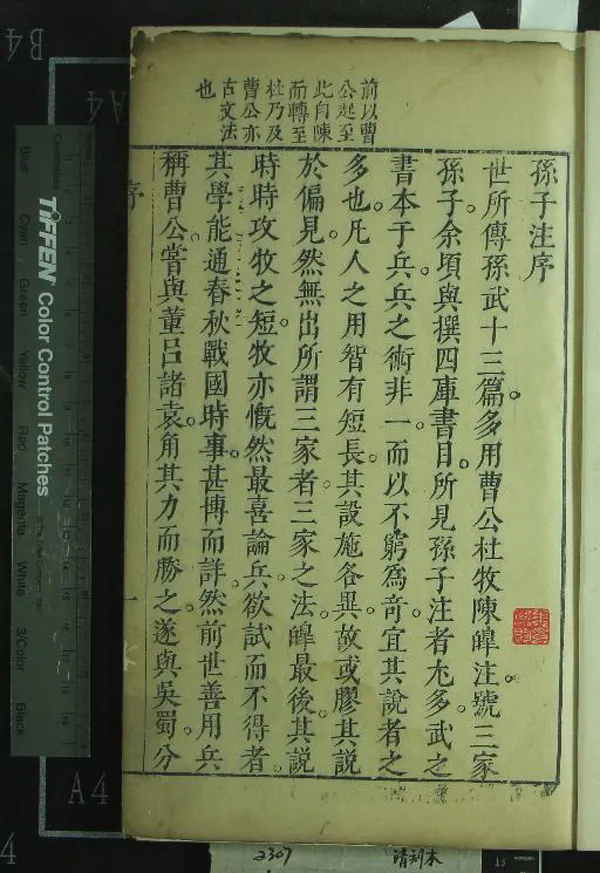 前以曹
公起至
此自陳
而轉至
杜乃及
曹公亦
古文法
也
孫子注序
世所傳孫武十三篇。多用曹公杜牧陳皥注。號三家
孫子。余頃與撰四庫書目。所見孫子注者尤多。武之
書本于兵。兵之術非一。而以不窮爲奇。宜其說者之
多也。凡人之用智有短長。其設施各異。故或膠其說
於偏見。然無出所謂三家者。三家之法。皥最後。其說
時時攻牧之短。牧亦慨然最喜論兵。欲試而不得者。
其學能通春秋戰國時事。甚博而詳。然前世善用兵
稱曹公。嘗與董呂諸袁。角其力而勝之。遂與吳蜀。分
序
一
TIFFEN Color Control Patches
© The Tiffen Company, 2007
Blue
Cyan
Green
Yellow
Red
Magenta
White
3/Color
Black
B4
A4
A4
2307
清刻本